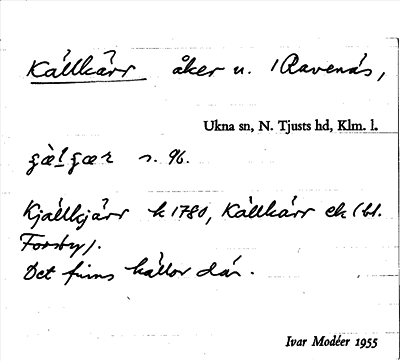 Källkärr åker u. Ravenäs,
Ukna sn, N. Tjusts hd, Klm. l.
s. 96.
Kjällkjärr k 1780, Källkärr ek (bl.
Forsby).
Det finns källor där.
Ivar Modéer 1955